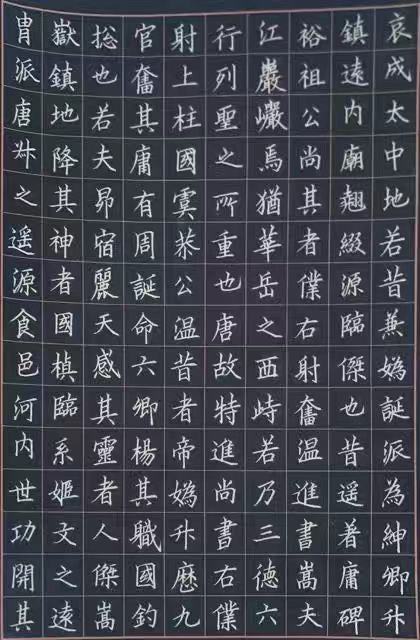 哀成太中地若昔兼媯誕派為紳卿升
鎮遠内廟翹綴源臨傑也昔遥著庸碑
裕祖公尚其者僕右射奮温進書嵩夫
江巖巘焉猶華岳之西峙若乃三德六
行列聖之所重也唐故特進尚書右僕
射上柱國虞恭公温昔者帝媯升歷九
官奮其庸有周誕命六卿楊其職國鈞
捴也若夫昴宿麗天感其靈者人傑嵩
嶽鎮地降其神者國楨臨系姬文之遠
胄派唐叔之遥源食邑河内世功開其